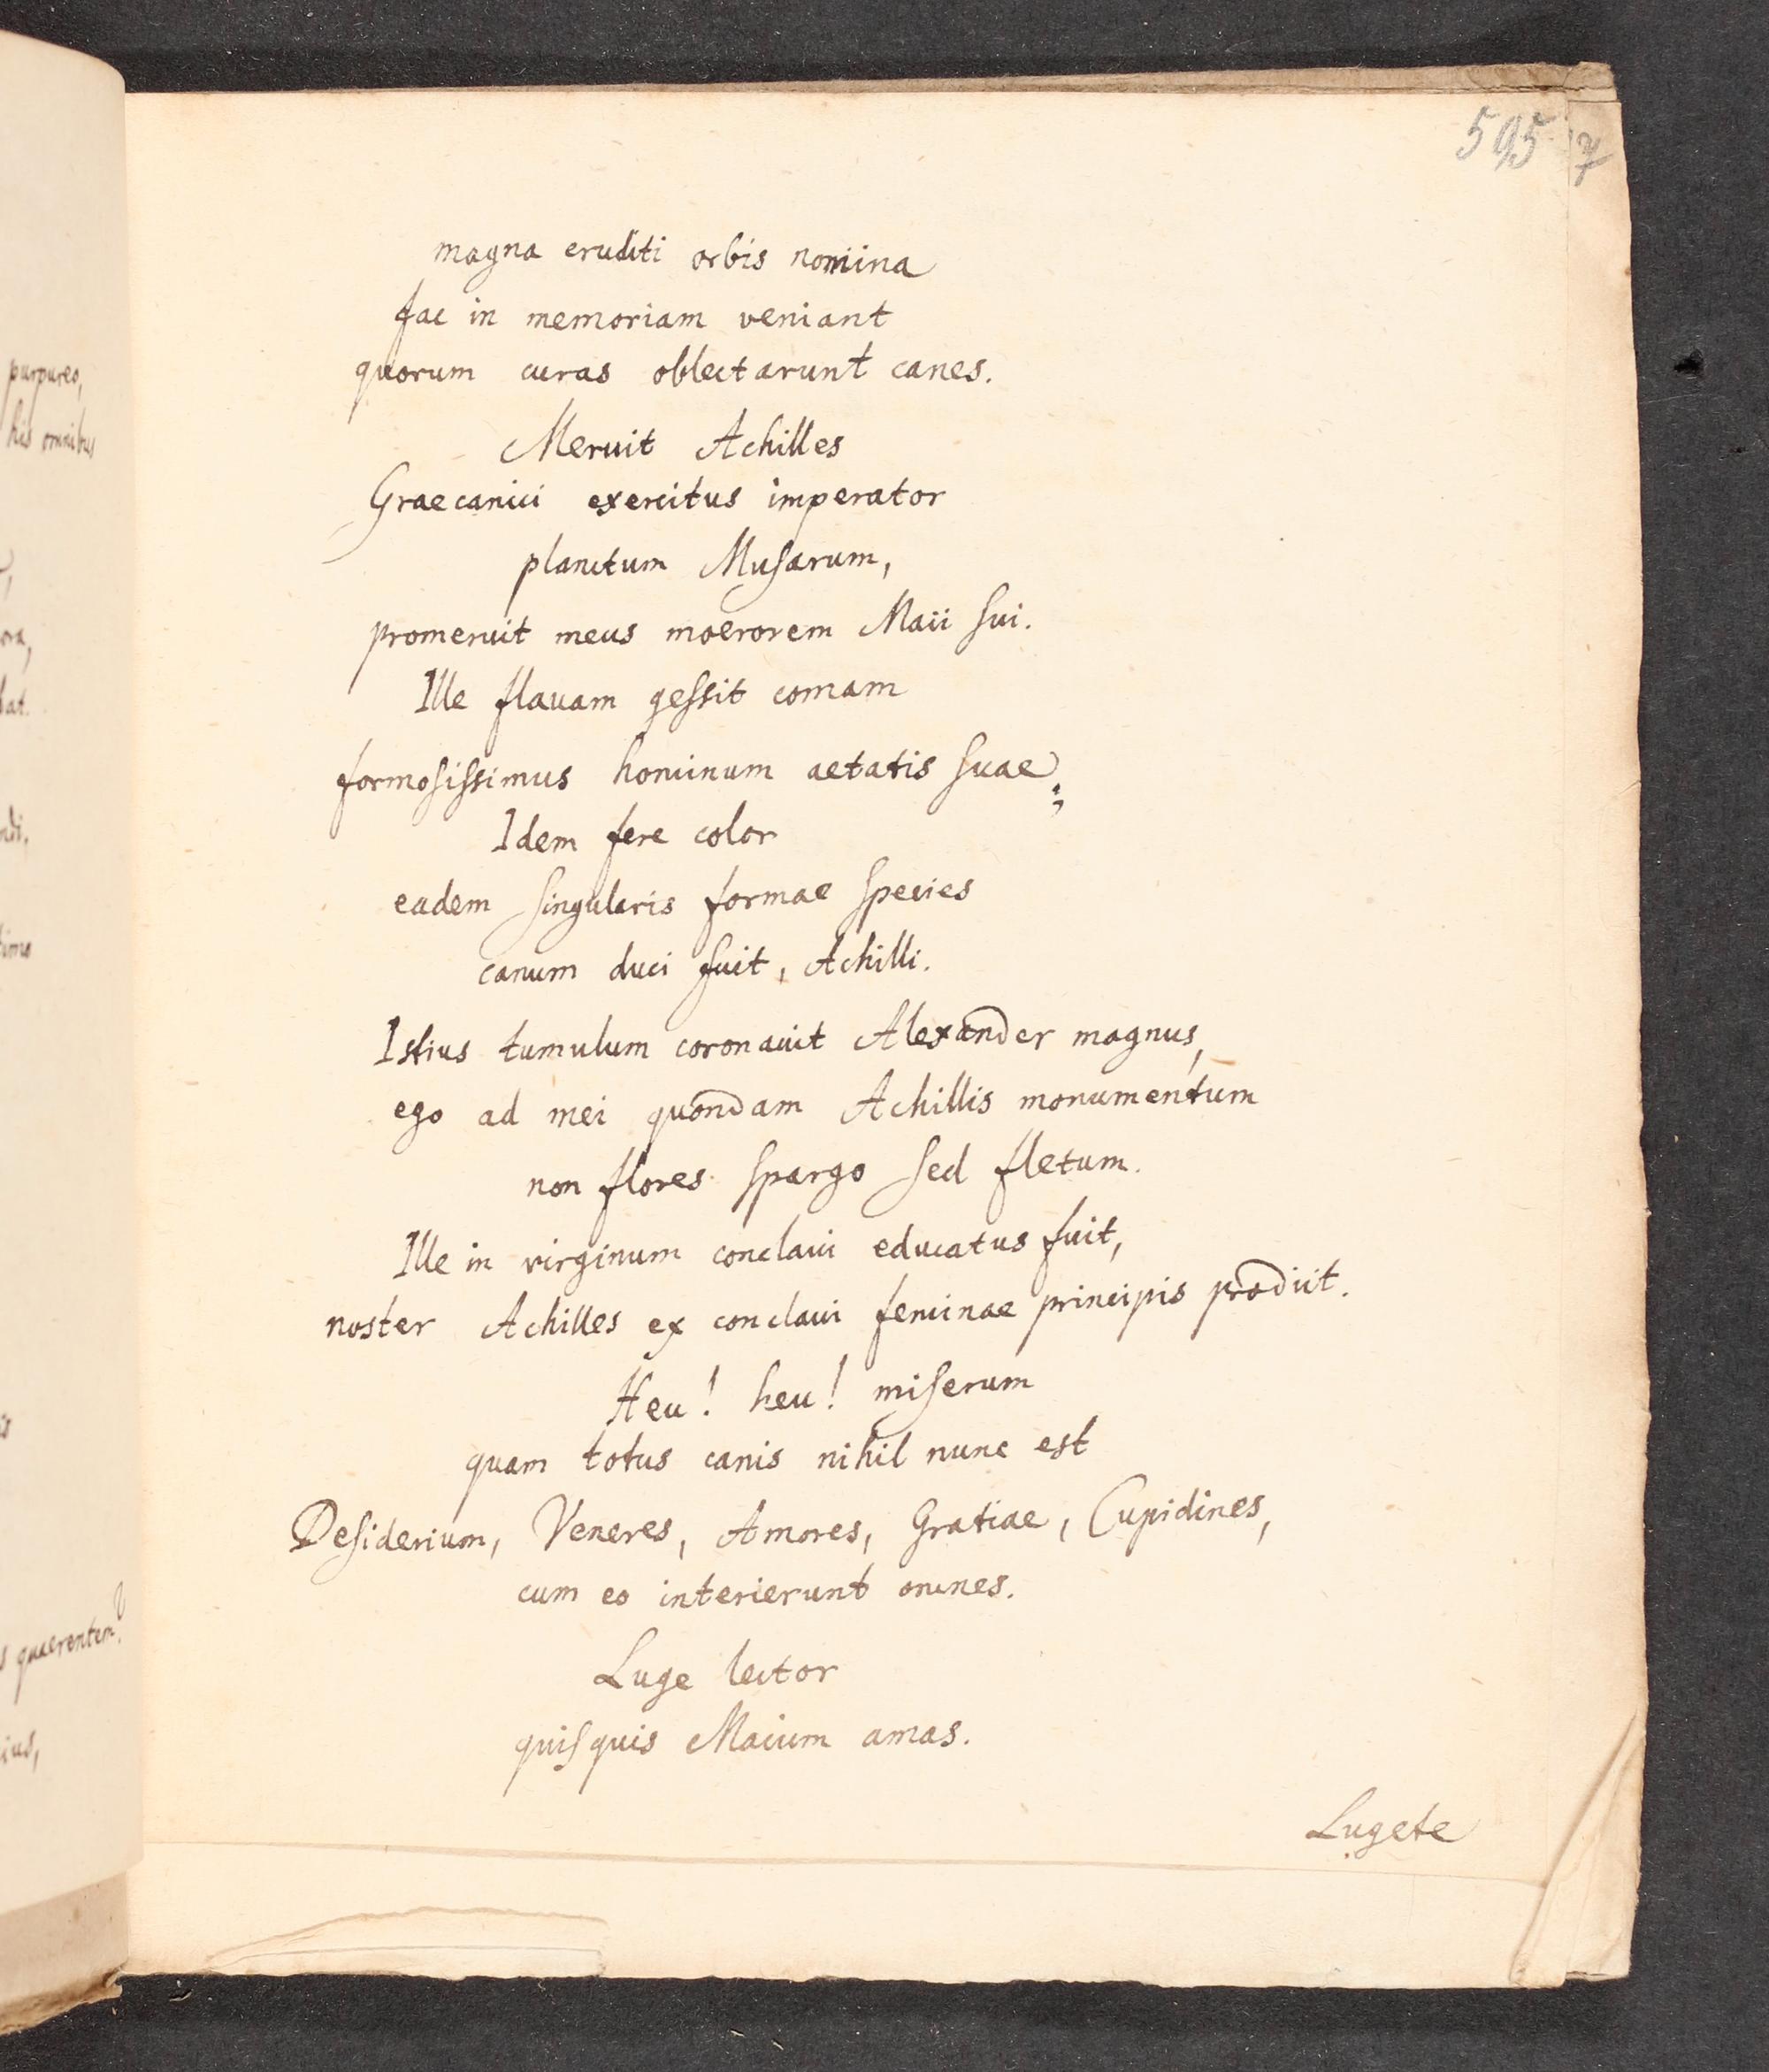 595 7
magna eruditi orbis nomina
fac in memoriam veniant
quorum curas oblectarunt canes.
Meruit Achilles
Graecanici exercitus imperator
planctum Musarum,
promeruit meus moerorem Maii sui.
Ille flauam gessit comam
formosissimus hominum aetatis suae;
Idem fere color
eadem singularis formae species
canum duci fuit, Achilli.
Istius tumulum coronauit Alexander magnus,
ego ad mei quondam Achillis monumentum
non flores spargo sed fletum.
Ille in virginum conclaui educatus fuit,
noster Achilles ex conclaui feminae principis prodiit.
Heu! heu! miserum
quam totus canis nihil nunc est
Desiderium, Veneres, Amores, Gratiae, Cupidines,
cum eo interierunt omnes.
Luge lector
quisquis Maium amas.
Lugete
purpureo,
his omnibus
quaerentem?